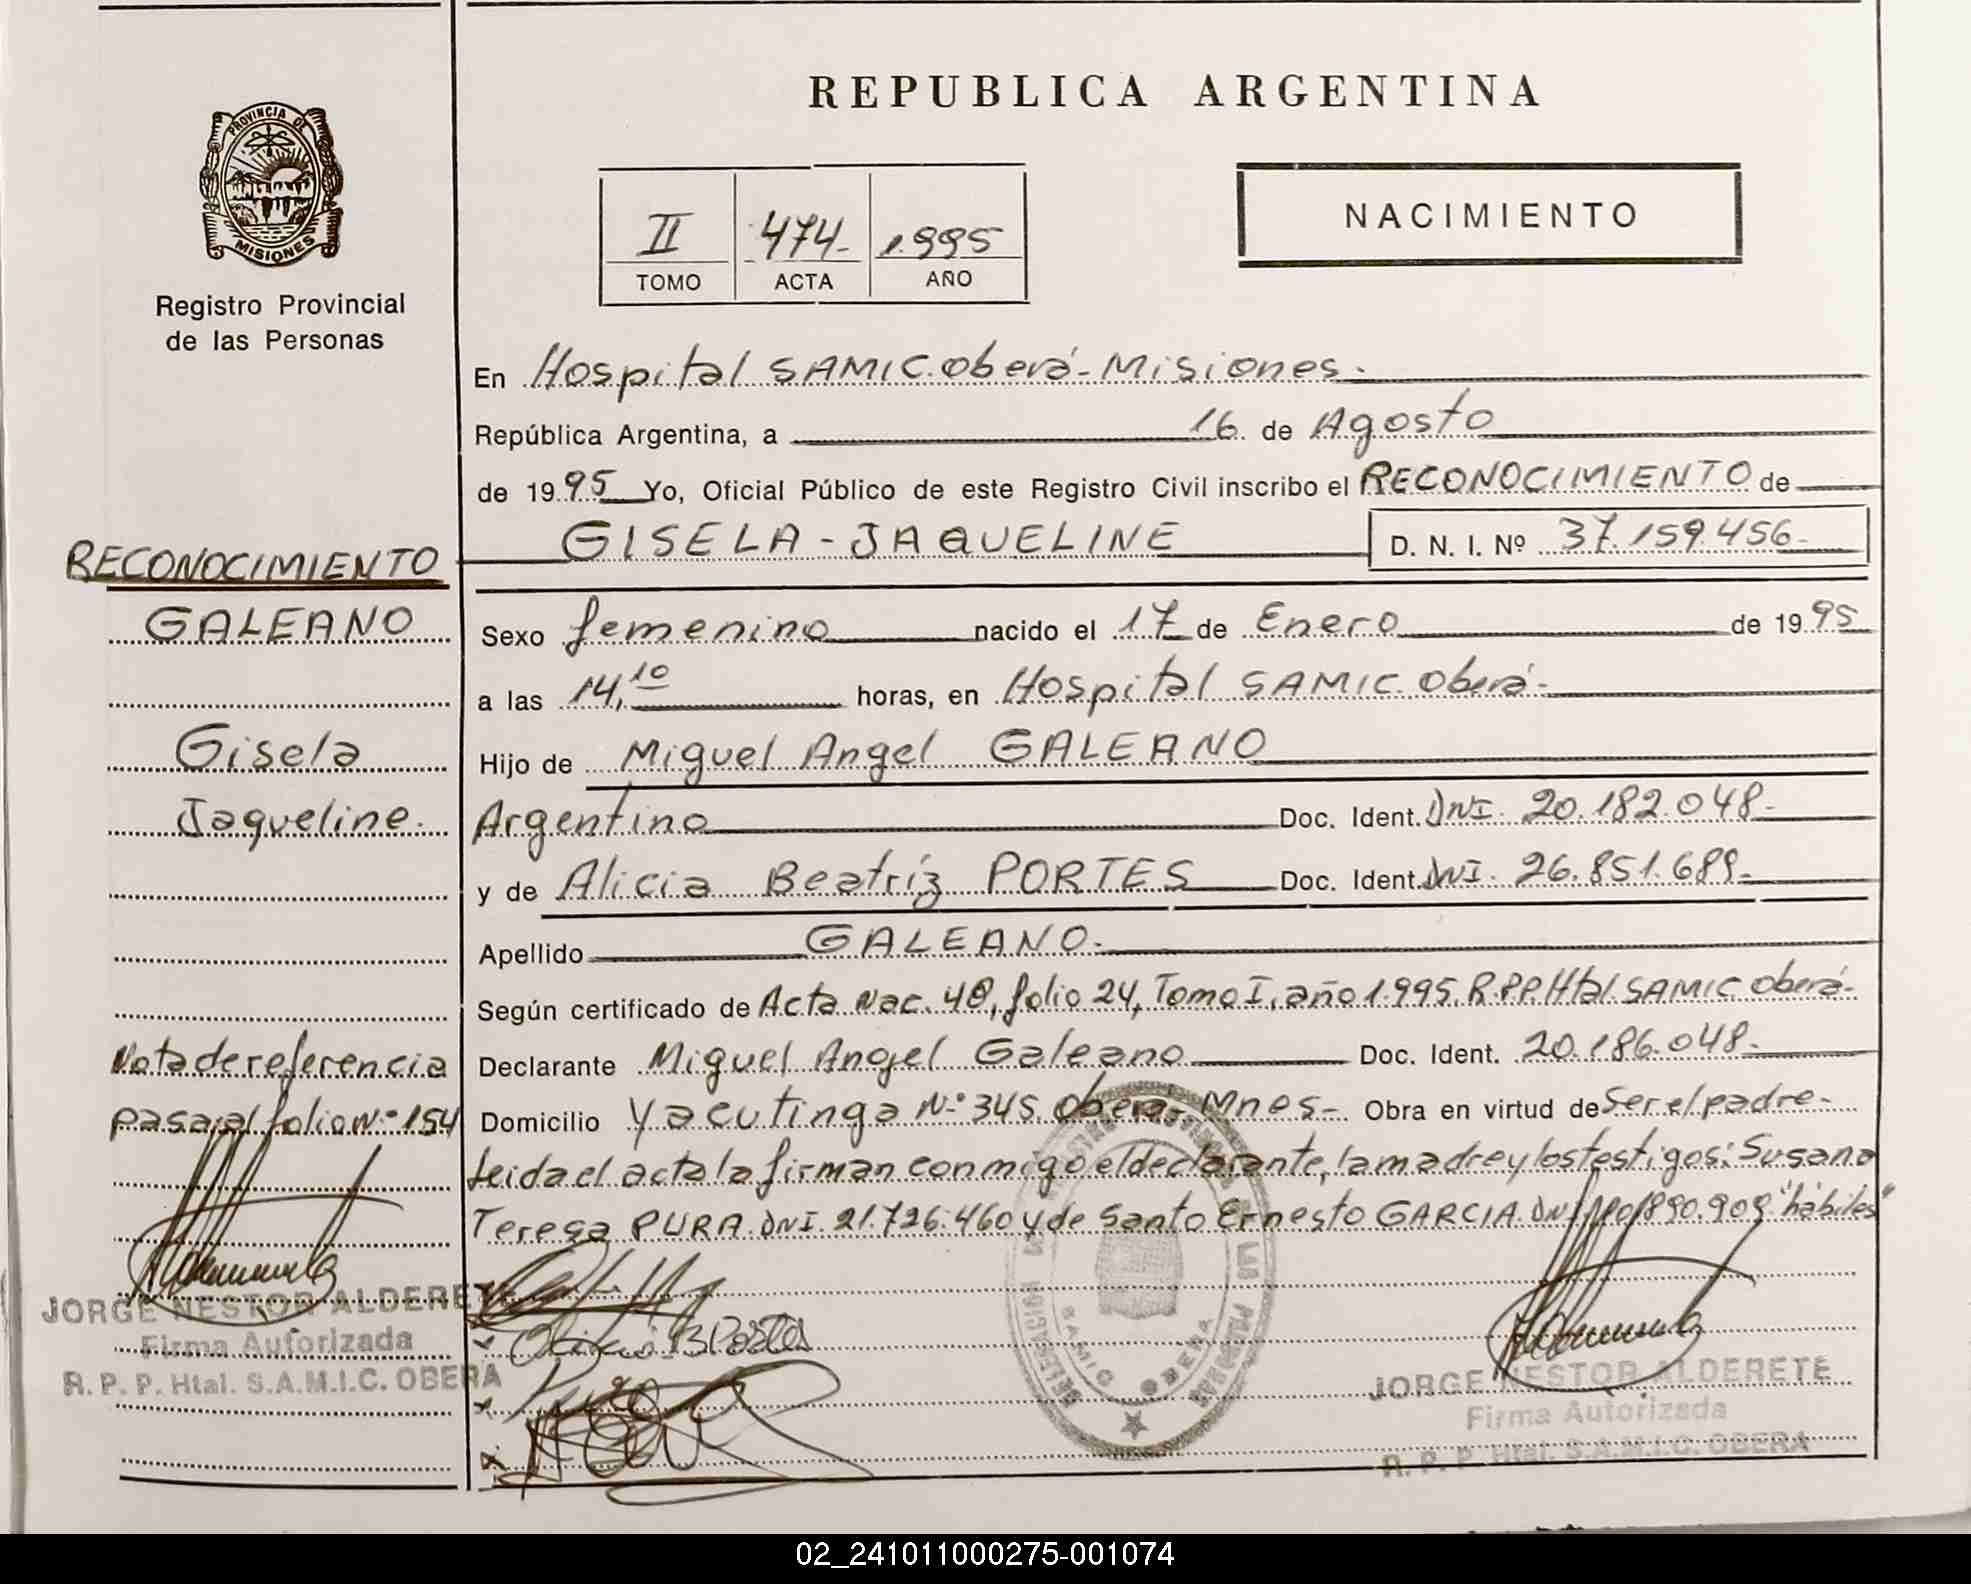 REPUBLICA ARGENTINA
PROVINCIA DE
MISIONES
Registro Provincial
de las Personas
II 474- 1.995
TOMO ACTA AÑO
NACIMIENTO
En Hospital SAMIC. Oberá-Misiones.
República Argentina, a 16 de Agosto
de 1995 Yo, Oficial Público de este Registro Civil inscribo el RECONOCIMIENTO de
GISELA-JAQUELINE D. N. I. Nº 37.159.456-
Sexo femenino nacido el 17 de Enero de 1995
a las 14,10 horas, en Hospital SAMIC. Oberá-
Hijo de Miguel Angel GALEANO
Argentino Doc. Ident. DNI. 20.182.048-
y de Alicia Beatríz PORTES Doc. Ident. DNI. 26.851.689-
Apellido GALEANO-
Según certificado de Acta Nac. 48, folio 24, Tomo I, año 1.995. R.P.P. Htal. SAMIC Oberá-
Declarante Miguel Angel Galeano Doc. Ident. 20.186.048-
Domicilio Yacutinga N.º 345. Oberá-Mnes- Obra en virtud de Ser el padre-
Leida el acta la firman conmigo el declarante, la madre y los testigos: Susana
Teresa PURA. DNI. 21.726.460 y de Santo Ernesto GARCIA. DNI "hábiles"
RECONOCIMIENTO
GALEANO
Gisela
Jaqueline.
Nota de referencia
pasa al folio N.º 154
JORGE NESTOR ALDERETE
Firma Autorizada
R. P. P. Htal. S.A.M.I.C. OBERA
SAMIC OBERA
JORGE NESTOR ALDERETE
Firma Autorizada
R. P. P. Htal. S.A.M.I.C. OBERA
02_241011000275-001074